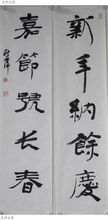 新年納餘慶
嘉節號长春